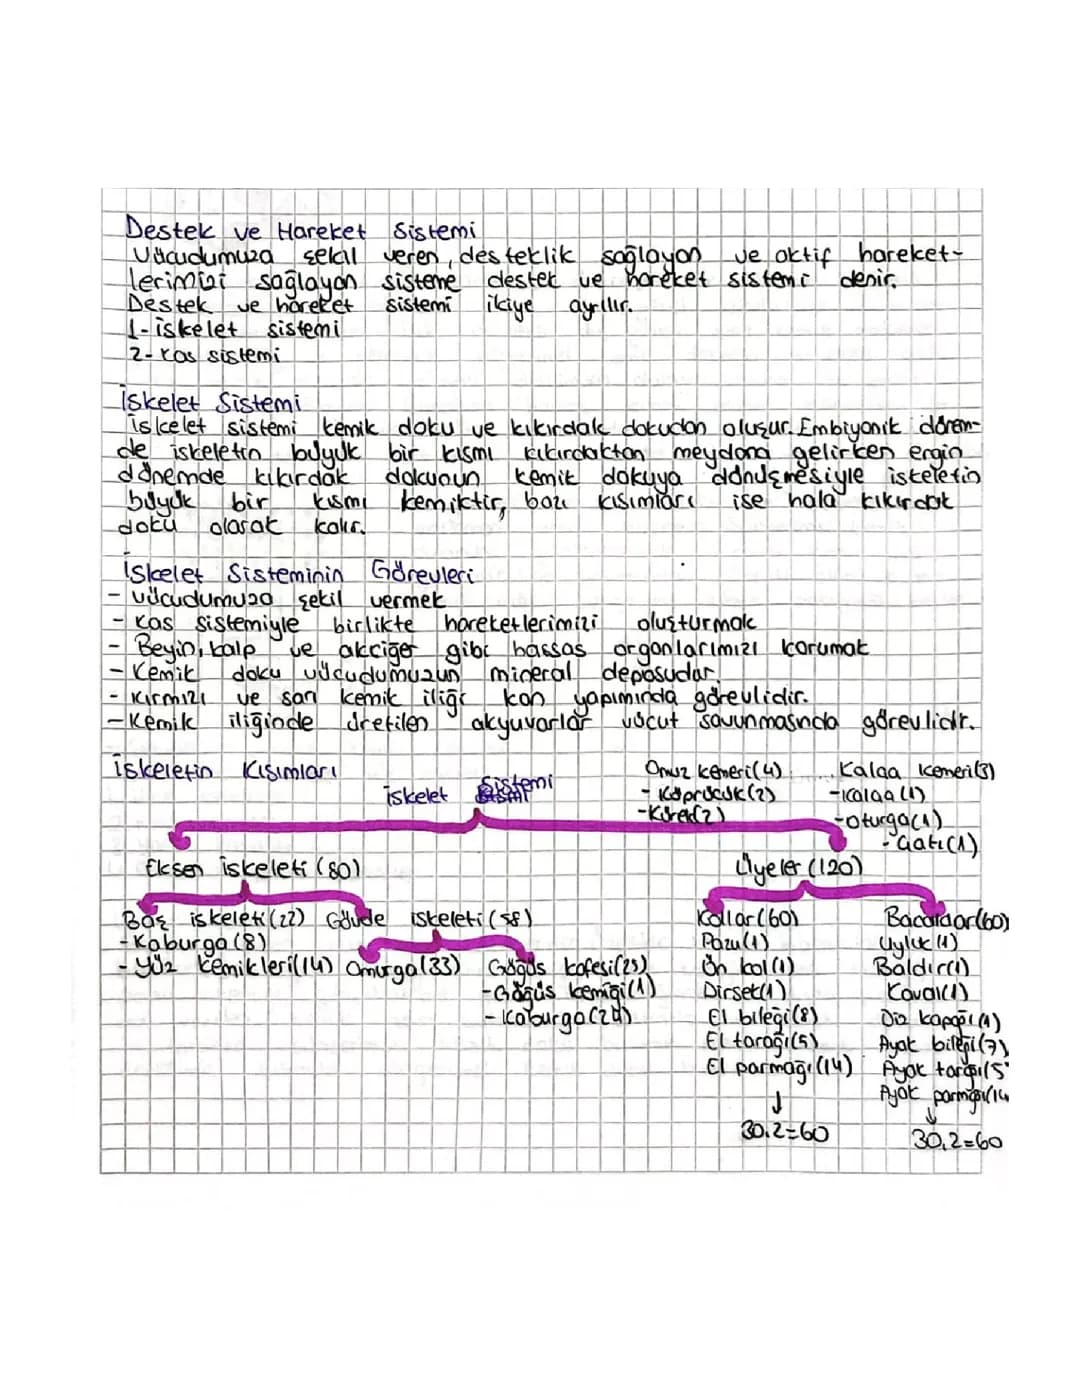 Destek ve Hareket Sistemi
Vücudumuza şekil veren, desteklik sağlayan ve aktif hareket-
lerimizi sağlayan sisteme destek ve hareket sistemi denir.
Destek ve hareket sistemi ikiye ayrılır.
1- iskelet sistemi
2- Kas sistemi
İskelet Sistemi
İskelet sistemi kemik doku ve kıkırdak dokudan oluşur. Embiyonik dönem-
de iskeletin büyük bir kısmı kıkırdaktan meydana gelirken ergin
dönemde kıkırdak dokunun kemik dokuya dönüşmesiyle iskeletin
büyük bir kısmı kemiktir, bazı kısımları ise hala kıkırdak
doku olarak kalır.
İskelet Sisteminin Görevleri
- Vücudumuza şekil vermek
- Kas sistemiyle birlikte hareketlerimizi oluşturmak
- Beyin, kalp ve akciğer gibi hassas organlarımızı korumak
- Kemik doku vücudumuzun mineral deposudur.
- Kırmızı ve sarı kemik iliği kan yapımında görevlidir.
- Kemik iliğinde üretilen akyuvarlar vücut savunmasında görevlidir.
İskeletin Kısımları
İskelet Sistemi
Omuz kemeri(4)
- Köprücük(2)
- Kürek(2)
Kalça kemeri(3)
- Kalça (1)
- Oturga(1)
- Çatı(1)
Eksen iskeleti (80)
Üyeler (120)
Baş iskeleti(22)
- Kaburga (8)
- Yüz kemikleri(14)
Gövde iskeleti(58)
Omurga(33)
Göğüs kafesi(25)
- Göğüs kemiği(1)
- Kaburga(24)
Kollar(60)
Pazu(1)
Ön kol(1)
Dirsek(1)
El bileği(8)
El tarağı(5)
El parmağı(14)
30.2=60
Bacaklar(60)
Uyluk(1)
Baldır(1)
Kaval(1)
Diz kapağı(1)
Ayak bileği(7)
Ayak tarağı(5
Ayak parmağı(14
30.2=60